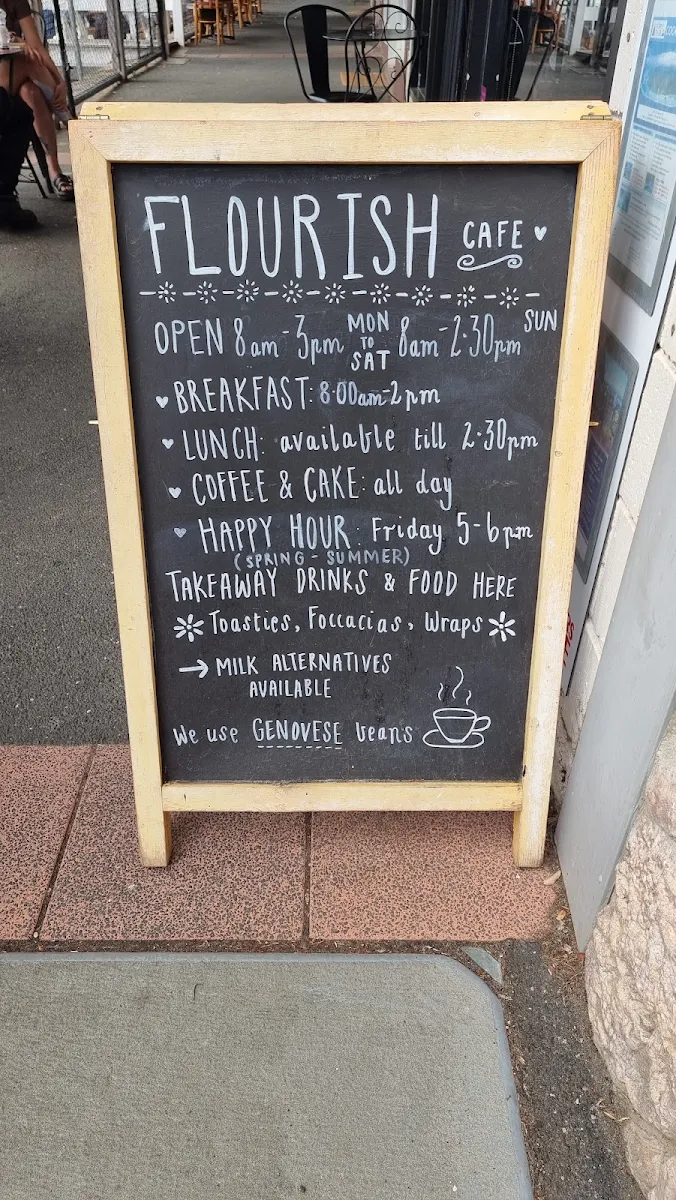 FLOURISH CAFE
OPEN 8am-3pm MON TO SAT 8am-2.30pm SUN
BREAKFAST: 8:00am-2pm
LUNCH: available till 2.30pm
COFFEE & CAKE: all day
HAPPY HOUR: Friday 5-6pm
(SPRING - SUMMER)
TAKEAWAY DRINKS & FOOD HERE
Toasties, Foccacias, Wraps
→ MILK ALTERNATIVES
AVAILABLE
We use GENOVESE beans